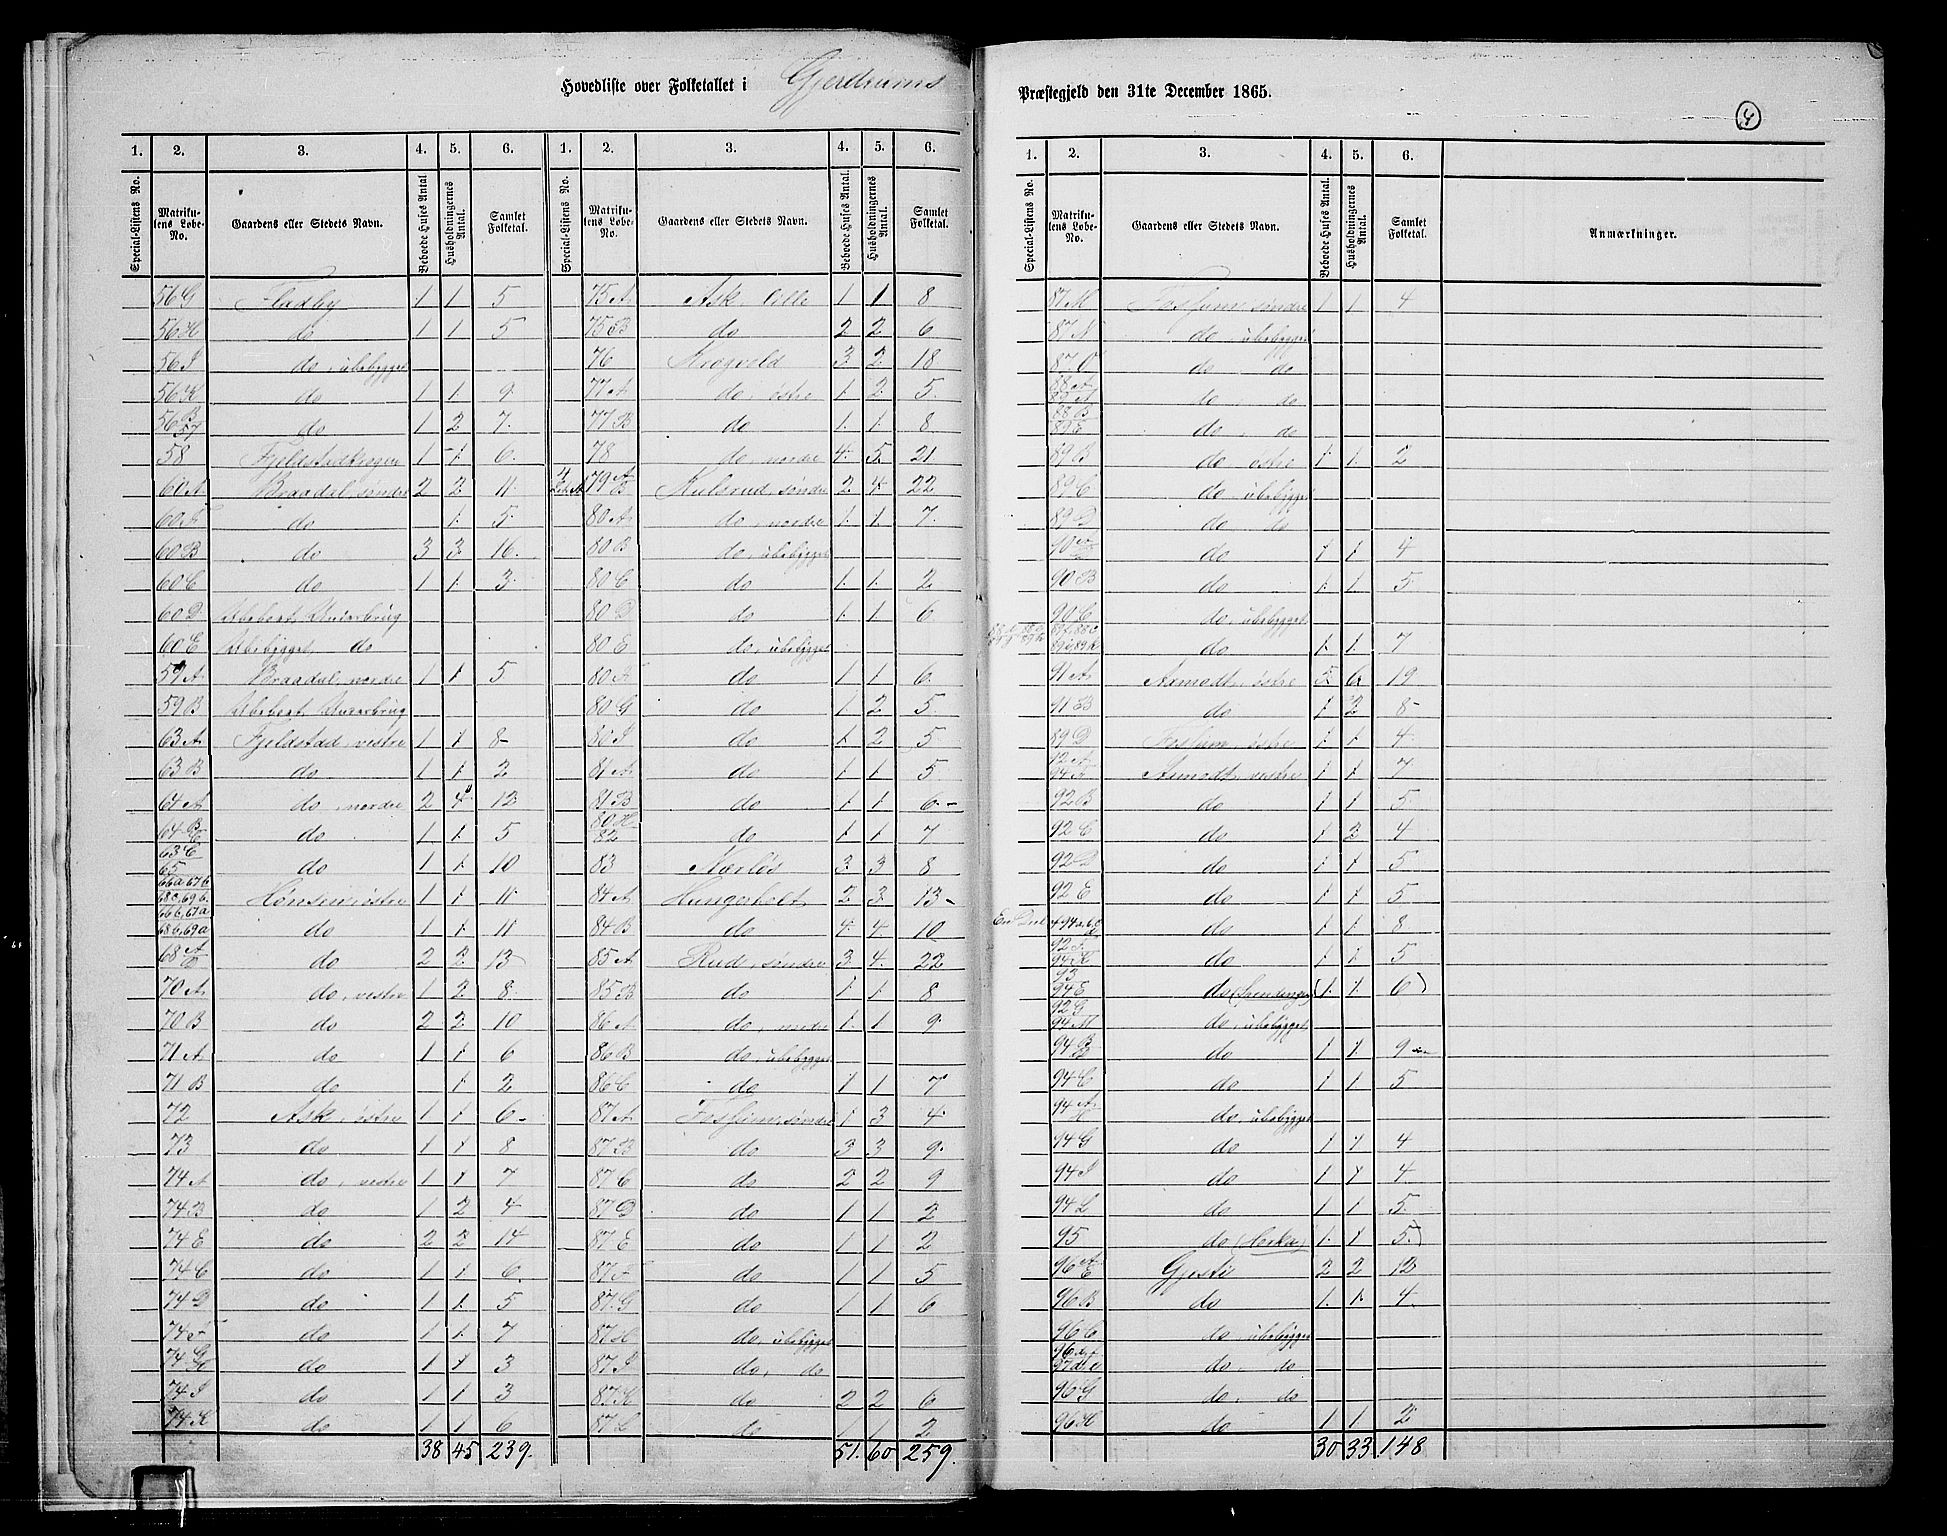 Hovedliste over Folketallet i Gjerdrums
Præstegjeld den 31te December 1865.
4
1. 2. 3. 4. 5. 6. 1. 2. 3. 4. 5. 6.
Special-Listens No. Matrikulens Løbe-No. Gaardens eller Stedets Navn. Beboede Huses Antal Husholdningernes Antal. Samlet Folketal. Special-Listens No. Matrikulens Løbe-No. Gaardens eller Stedets Navn. Beboede Huses Antal. Husholdningernes Antal. Samlet Folketal.
56 G Fladby 1 1 5 75 A Ask, lille 1 1 8
56 H do 1 1 5 75 B do 2 2 6
56 I do, ubebygget 76 Krogvold 3 2 18
56 K do 1 1 9 77 A do, østre 1 2 5
56 B 57 do 1 2 7 77 B do 1 1 8
58 Fjeldstadkrogen 1 1 6 78 do, nordre 4 5 21
60 A Braadal, søndre 2 2 11 79 A B Kulsrud, søndre 2 4 22
60 F do 1 5 80 A do, nordre 1 1 7
60 B do 3 3 16 80 B do, ubebygget
60 C do 1 1 3 80 C do 1 1 2
60 D Ubeboet Underbrug 80 D do 1 1 6
60 E Ubebygget do 80 E do, ubebygget
59 A Braadal, nordre 1 1 5 80 F do 1 1 6
59 B Ubeboet Underbrug 80 G do 1 2 5
63 A Fjeldstad, vestre 1 1 8 80 I do 1 2 5
63 B do 1 1 2 81 A do 1 1 5
64 A do, nordre 2 4 12 81 B do 1 1 6
64 B C do 1 1 5 80 H 82 do 1 1 7
63 C 65 do 1 1 10 83 Nærløs 3 3 8
66a, 67b 68c, 69b Hønsenøstre 1 1 11 84 A Hungerholt 2 3 13
66b, 67a 68b, 69a do 1 1 11 84 B do 4 4 10
68 A D do 2 2 13 85 A Rud, søndre 3 4 22
70 A do, vestre 1 2 8 85 B do 1 1 8
70 B do 2 2 10 86 A do, nordre 1 1 9
71 A do 1 1 6 86 B do, ubebygget
71 B do 1 2 86 C do 1 1 7
72 Ask, østre 1 1 6 87 A Fosshum, søndre 1 3 4
73 do 1 1 8 87 B do 3 3 9
74 A do, vestre 1 1 7 87 C do 2 2 9
74 B do 1 2 4 87 D do 1 1 2
74 E do 2 2 14 87 E do 1 1 2
74 C do 1 1 6 87 F do 1 1 5
74 D do 1 1 5 87 G do 1 1 6
74 F do 1 1 7 87 H do, ubebygget
74 G H do 1 1 3 87 I do, do
74 I do 1 1 3 87 K do 2 2 6
74 K do 1 1 6 87 L do 1 1 2
38 45 239. 51. 60 259.
1. 2. 3. 4. 5. 6.
Special-Listens No. Matrikulens Løbe-No. Gaardens eller Stedets Navn. Beboede Huses Antal. Husholdningernes Antal. Samlet Folketal. Anmærkninger.
87 M Fosshum, søndre 1 1 4
87 N do, ubebygget
87 O do do
88 A 89 A do do
88 B 89 E do, do
89 B do østre 1 1 2
89 C do, ubebygget
89 D do do
90 do 1 1 4
90 B do 1 1 5
90 C do, ubebygget
do 1 1 7
91 A Armodt, østre 5 6 19
91 B do 1 2 8
89 D Fosshum, østre 1 1 4
92 A 94 A Armodt, vestre 1 1 7
92 B do 1 1 5
92 C do 1 2 4
92 D do 1 1 5
92 E do 1 1 5
En Deel do 1 1 8
92 F 94 K do 1 1 5
93 94 E do (Spendingen) (1 1 6)
92 G 94 M do, ubebygget
94 B do 1 1 9
94 C do 1 1 5
94 A do, ubebygget
94 G do 1 1 4
94 I do 1 1 4
94 L do 1 1 5
95 do (Herka) 1 1 5)
96 A E Gjesti 2 2 12
96 B do 1 1 4
96 C do, ubebygget
do do
96 G do, do
96 H do 1 1 2
30 33 148